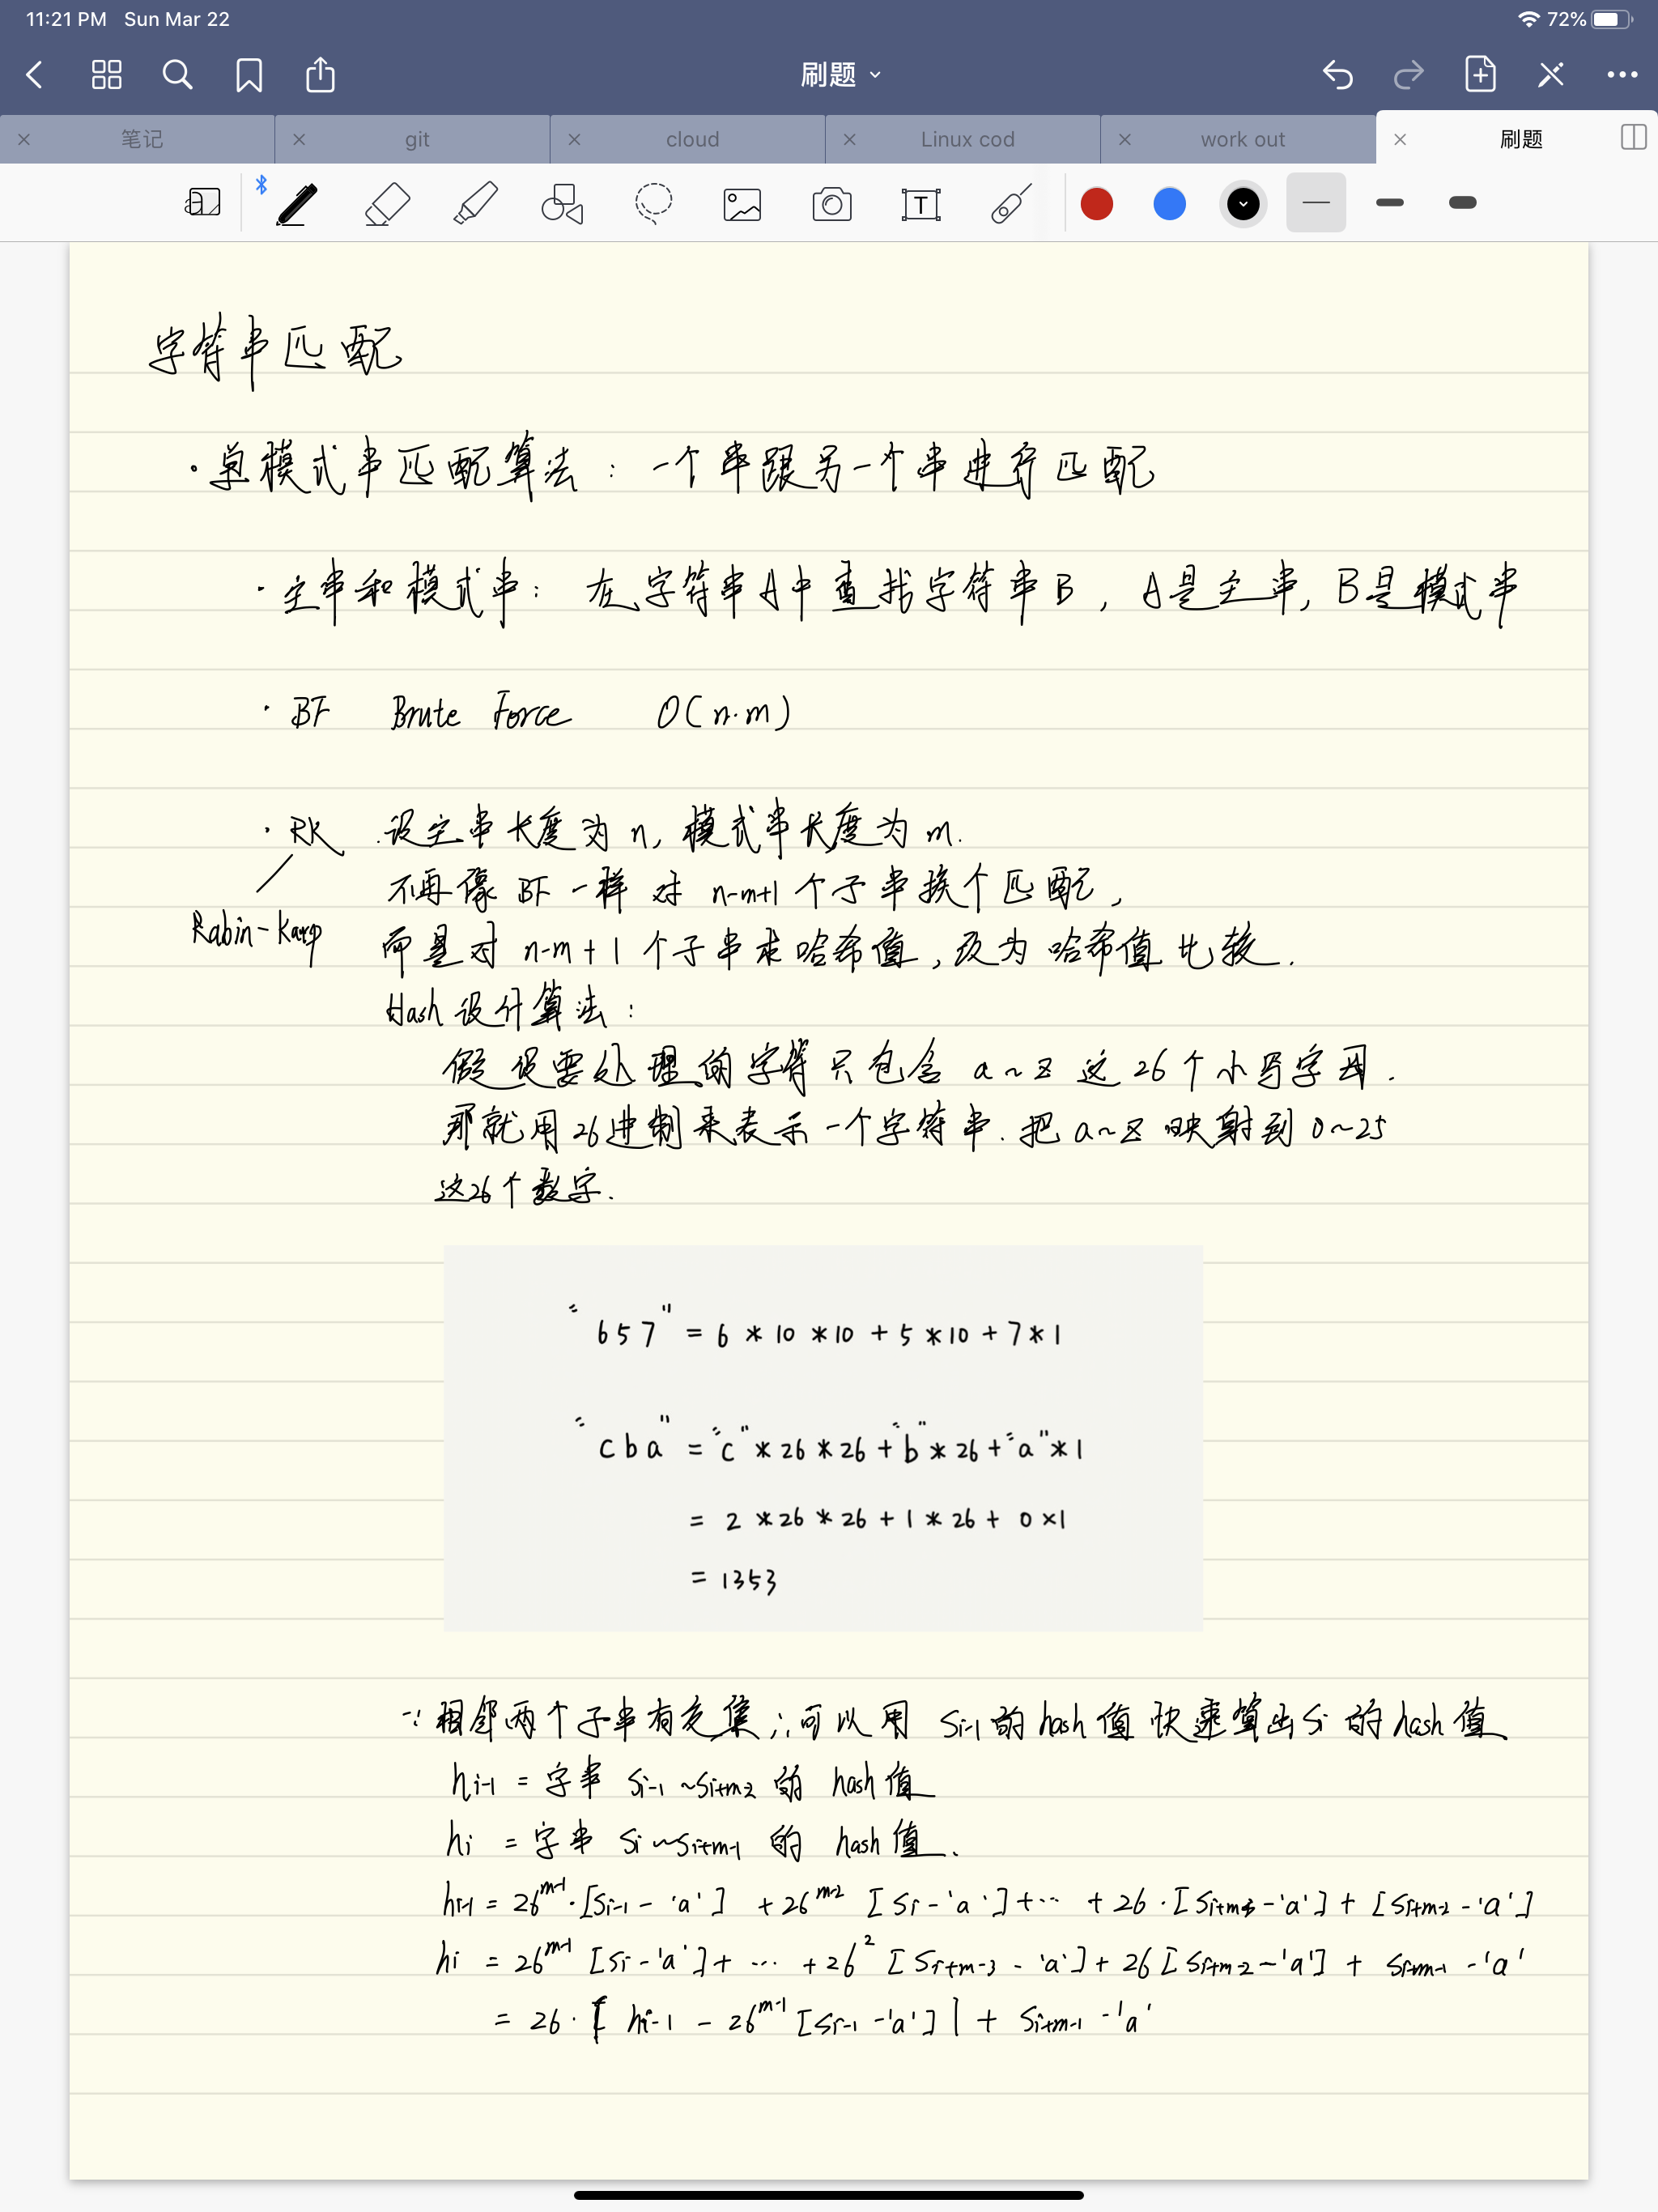 11:21 PM Sun Mar 22 72%
刷题
笔记 git cloud Linux cod work out 刷题
字符串匹配
· 单模式串匹配算法：一个串跟另一个串进行匹配
· 主串和模式串：在字符串A中查找字符串B，A是主串，B是模式串
· BF Brute Force O(n·m)
· RK 设主串长度为n，模式串长度为m.
不再像BF一样对 n-m+1 个子串挨个匹配，
Rabin-Karp
而是对 n-m+1 个子串求哈希值，改为哈希值比较.
Hash设计算法：
假设要处理的字符只包含 a~z 这26个小写字母.
那就用26进制来表示一个字符串.把a~z映射到0~25
这26个数字.
"657" = 6 * 10 * 10 + 5 * 10 + 7 * 1
"cba" = "c" * 26 * 26 + "b" * 26 + "a" * 1
= 2 * 26 * 26 + 1 * 26 + 0 × 1
= 1353
∵相邻两个子串有交集∴可以用 Si-1的hash值快速算出Si的hash值
hi-1 = 字串 Si-1~Si+m-2 的 hash值
hi = 字串 Si~Si+m-1 的 hash值.
hi-1 = 26^m-1·[Si-1 - 'a'] + 26^m-2 [Si - 'a'] + ··· + 26·[Si+m-3 - 'a'] + [Si+m-2 - 'a']
hi = 26^m-1 [Si - 'a'] + ··· + 26^2 [Si+m-3 - 'a'] + 26 [Si+m-2 - 'a'] + Si+m-1 - 'a'
= 26·[hi-1 - 26^m-1 [Si-1 - 'a']] + Si+m-1 - 'a'